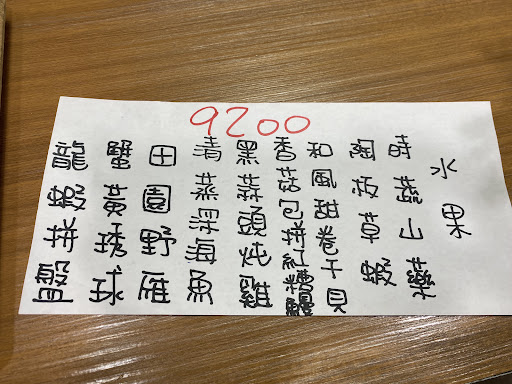 9200
龍蝦拼盤
蟹黃琇球
田園野雁
清蒸深海魚
黑蒜頭炖雞
香菇包拼紅糟鰻
和風甜卷干貝
陶板草蝦
時蔬山藥
水果